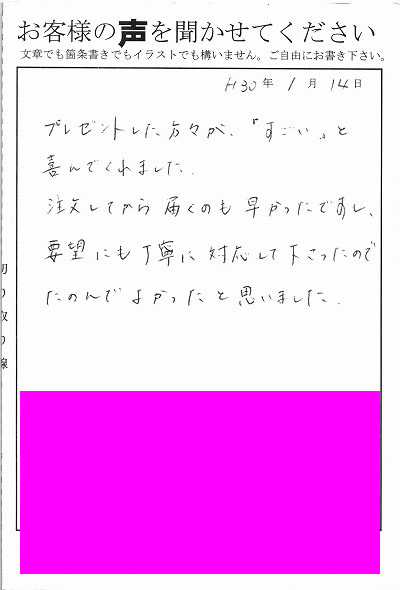 お客様の声を聞かせてください
文章でも箇条書きでもイラストでも構いません。ご自由にお書き下さい。
H30年 1月 14日
プレゼントした方々が、『すごい』と
喜んでくれました.
注文してから届くのも早かったですし、
要望にも丁寧に対応して下さったので
たのんでよかったと思いました.
切り取り線